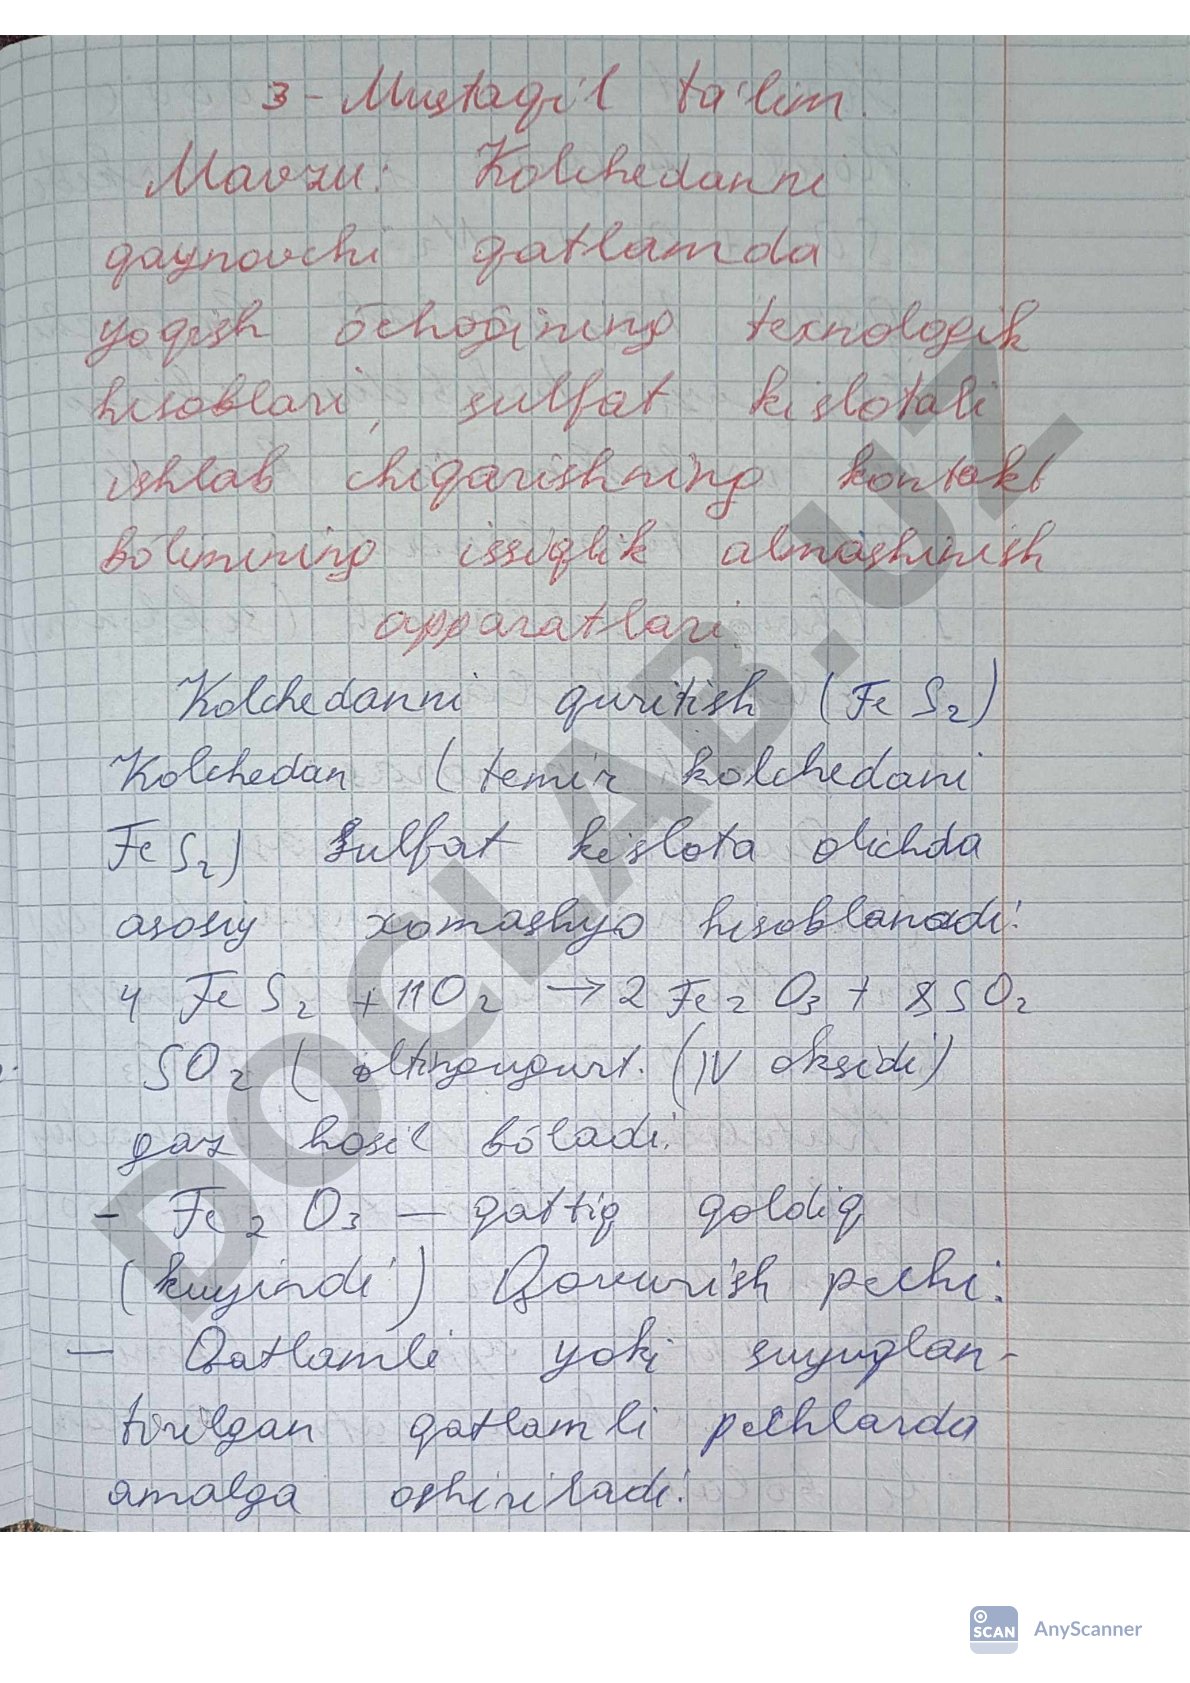 3 - Mustaqil ta'lim.
Mavzu: Kolchedanni
qaynovchi qatlamda
yoqish öchoğining texnologik
hisoblari, sulfat kislotali
ishlab chiqarishning kontakt
bölimining issiqlik almashinish
apparatlari
Kolchedanni quritish (FeS₂)
Kolchedan (temir kolchedani
FeS₂) sulfat kislota olichda
asosiy xomashyo hisoblanadi:
4 FeS₂ + 11O₂ → 2 Fe₂O₃ + 8SO₂
SO₂ (oltingugurt. (IV oksidi)
gaz hosil böladi.
- Fe₂O₃ — qattiq qoldiq
(kuyindi) Qovurish pechi:
— Qatlamli yoki suyuqlan-
tirilgan qatlamli pechlarda
amalga oshiriladi.
DOCLAB.UZ
SCAN AnyScanner